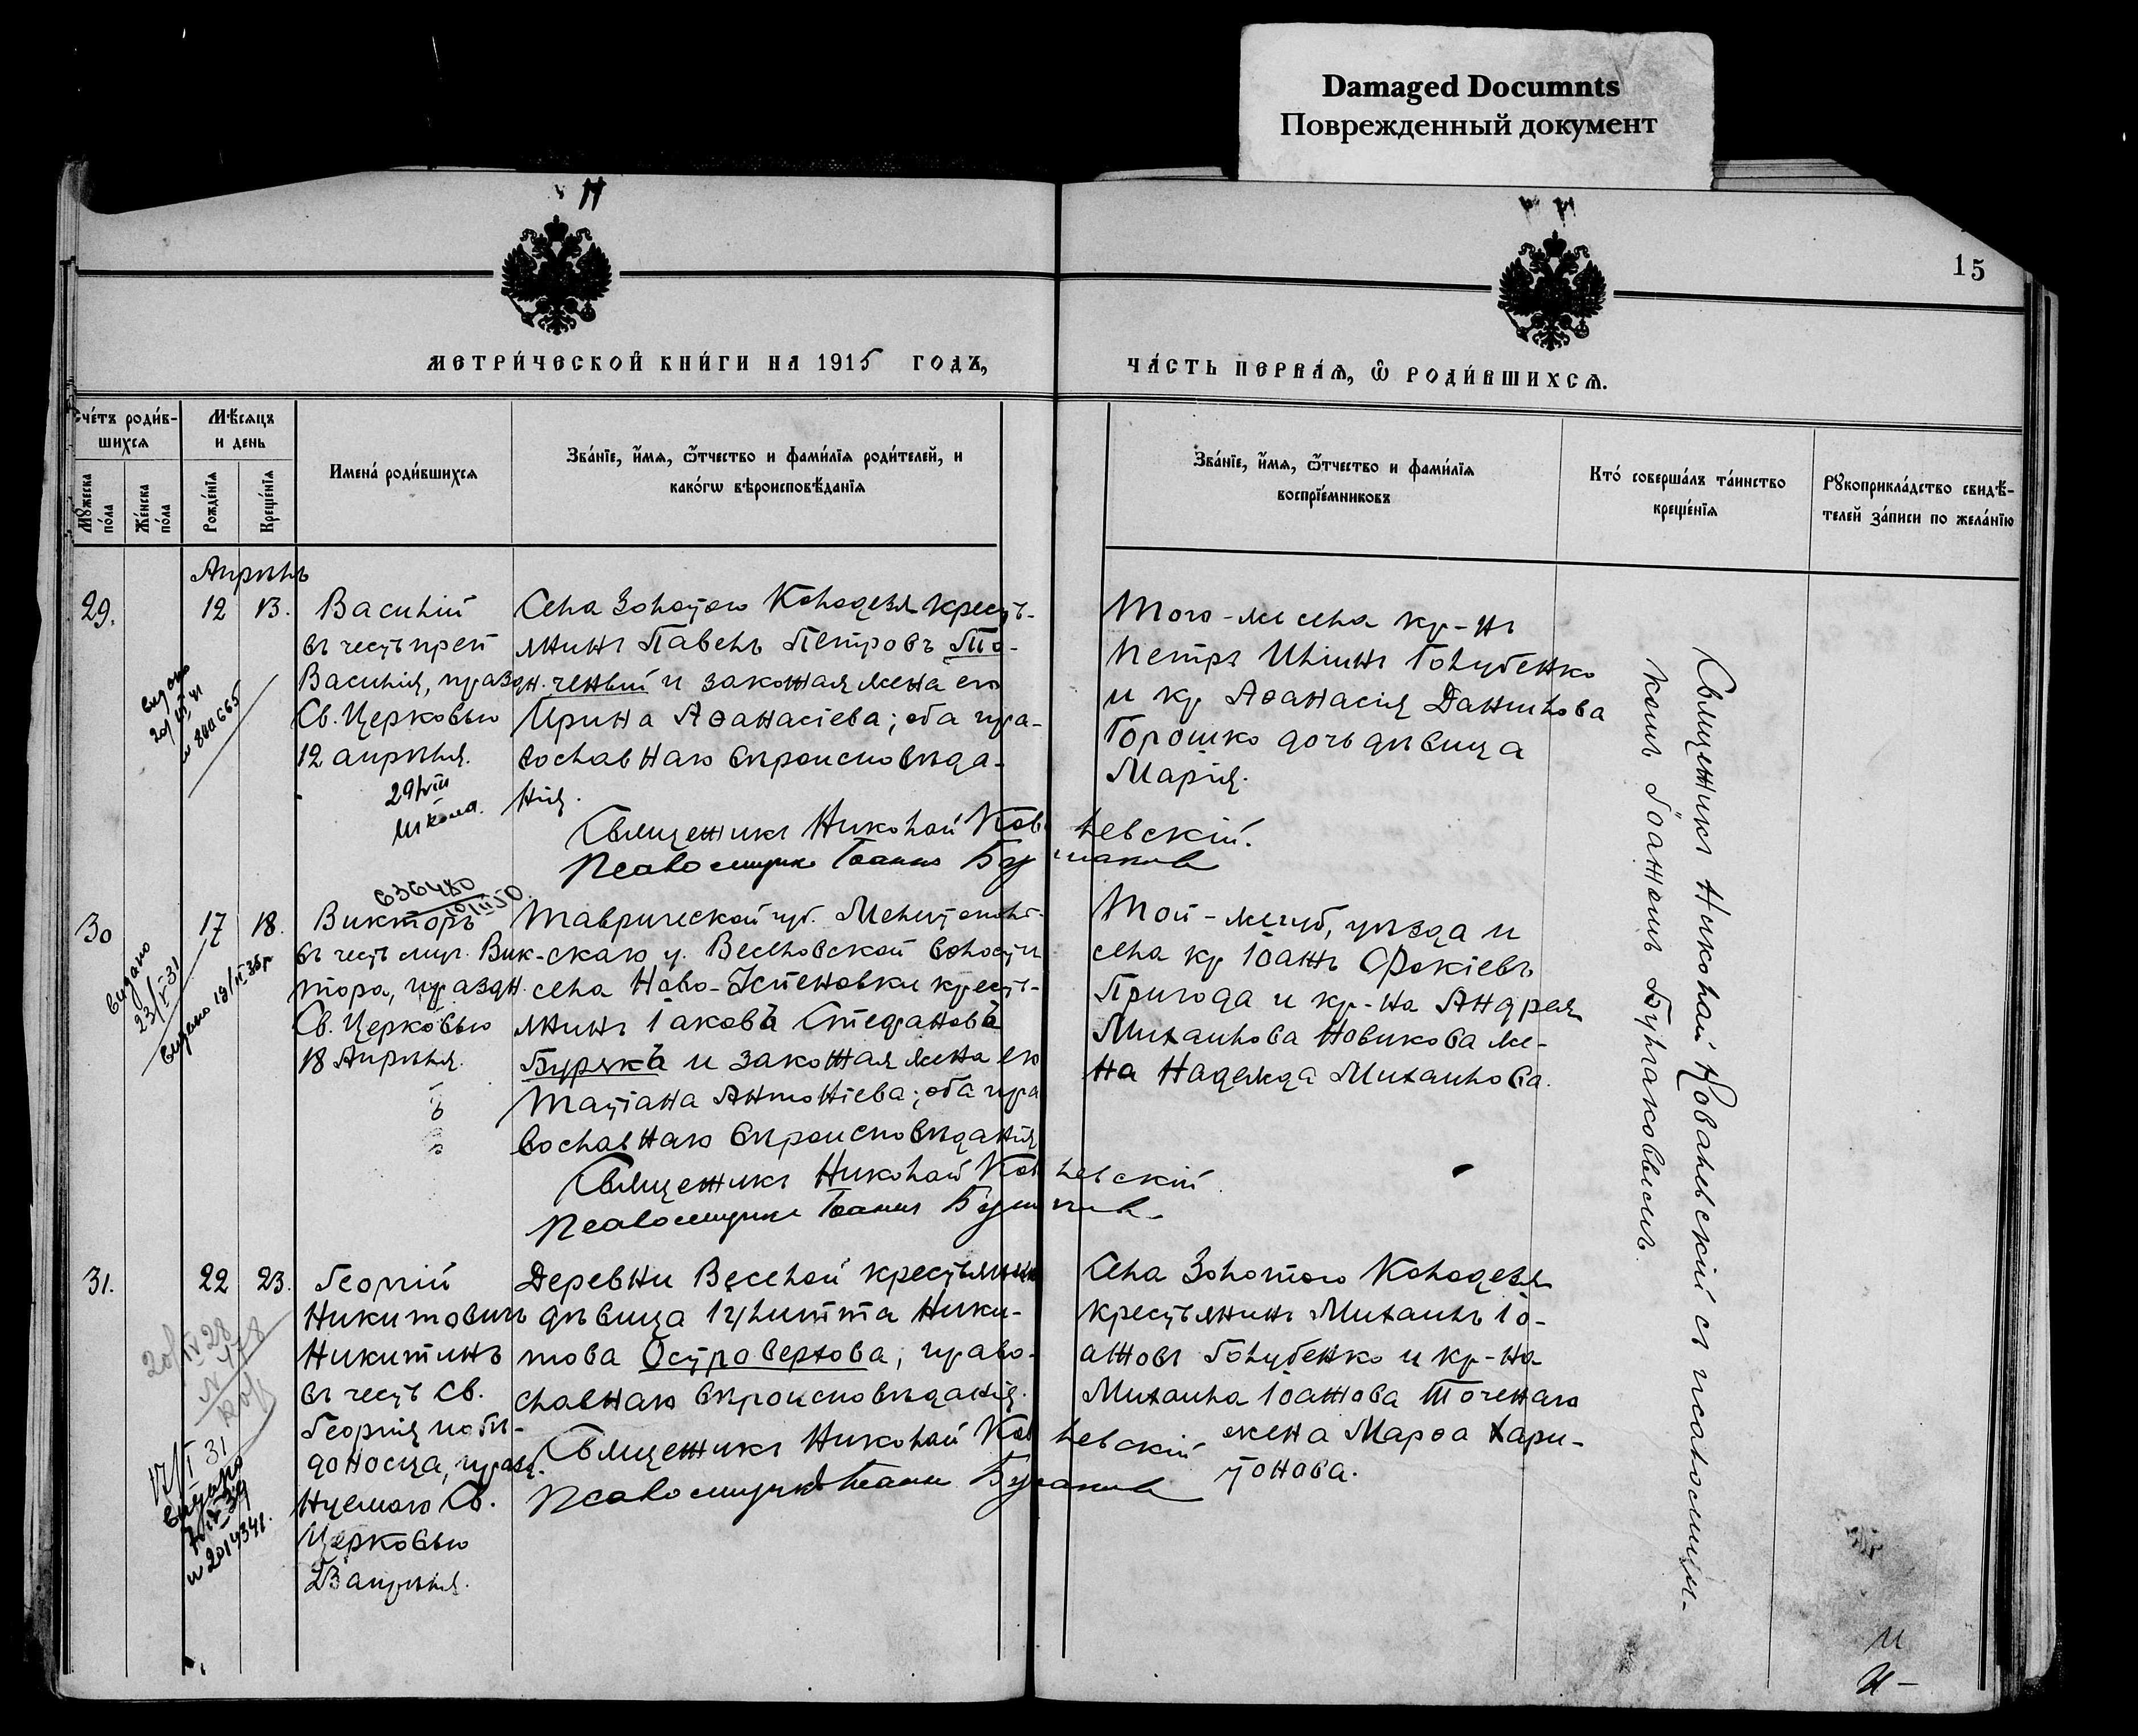 Damaged Documnts
Поврежденный документ
15
МЕТРИ́ЧЕСКОЙ КНИ́ГИ НА 1915 ГОДЪ,
ЧА́СТЬ ПЕРВАѦ, Ѡ РОДИ́ВШИХСѦ.
Сче́тъ роди́в-
шихсѧ
Мѣсѧцъ
и день
Мꙋжеска
по́ла
Же́нска
по́ла
Рожде́нїѧ
Креще́нїѧ
Имена́ роди́вшихсѧ
Зва́нїе, и́мѧ, ѻ́тчество и фами́лїѧ роди́телей, и
како́гѡ вѣроисповѣ́данїѧ
Зва́нїе, и́мѧ, ѻ́тчество и фами́лїѧ
воспрїе́мниковъ
Кто́ соверша́лъ та́инство
креще́нїѧ
Рꙋкоприкла́дство свидѣ́-
телей за́писи по жела́нїю
Апрѣль
29.
12
13.
Василій
въ честь преп
Василія, праздн.
Св. Церковью
12 апрѣля.
Села Золотого Колодезя кресть-
янинъ Павелъ Петровъ То-
ченый и законная жена его
Ирина Аѳанасіева; оба пра-
вославнаго вѣроисповѣда-
нія.
Священникъ Николай Ковалевскій.
Псаломщикъ Іоаннъ
Того-же села кр-нъ
Петръ Ильинъ Голубенко
и кр Аѳанасія Данилова
Горошко дочь дѣвица
Марія.
29/VIII
школа.
636480
30
17
18.
Викторъ
въ честь муч. Вик-
тора, праздн.
Св. Церковью
18 Апрѣля.
Таврической губ. Мелитополь-
скаго у. Веселовской волости
села Ново-Успеновки кресть-
янинъ Іаковъ Стефановъ
Бурякъ и законная жена его
Татіана Антоніева; оба пра
вославнаго вѣроисповѣданія
Священникъ Николай Ковалевскій
Псаломщикъ Іоаннъ
Той-же губ, уѣзда и
села кр Іоаннъ Фокіевъ
Пригода и кр-на Андрея
Михаилова Новикова же-
на Надежда Михаилова.
Видано
23/V 31
31.
22
23.
Георгій
Никитовичъ
Никитинъ
въ честь Св.
Георгія побѣ-
доносца, празд.
нуемаго Св.
Церковью
23 апрѣля.
Деревни Веселой крестьянка
дѣвица Іулитта Ники-
това Островерхова, право-
славнаго вѣроисповѣданія.
Священникъ Николай Ковалевскій
Псаломщикъ Іоаннъ
Села Золотого Колодезя
крестьянинъ Михаилъ Іо-
анновъ Голубенко и кр-на
Михаила Іоаннова Точенаго
жена Марѳа Хари-
тонова.
17/I 31
Видано
№ 2014341.
Священникъ Николай Ковалевскій съ псаломщи-
комъ Іоанномъ Булгаковымъ.